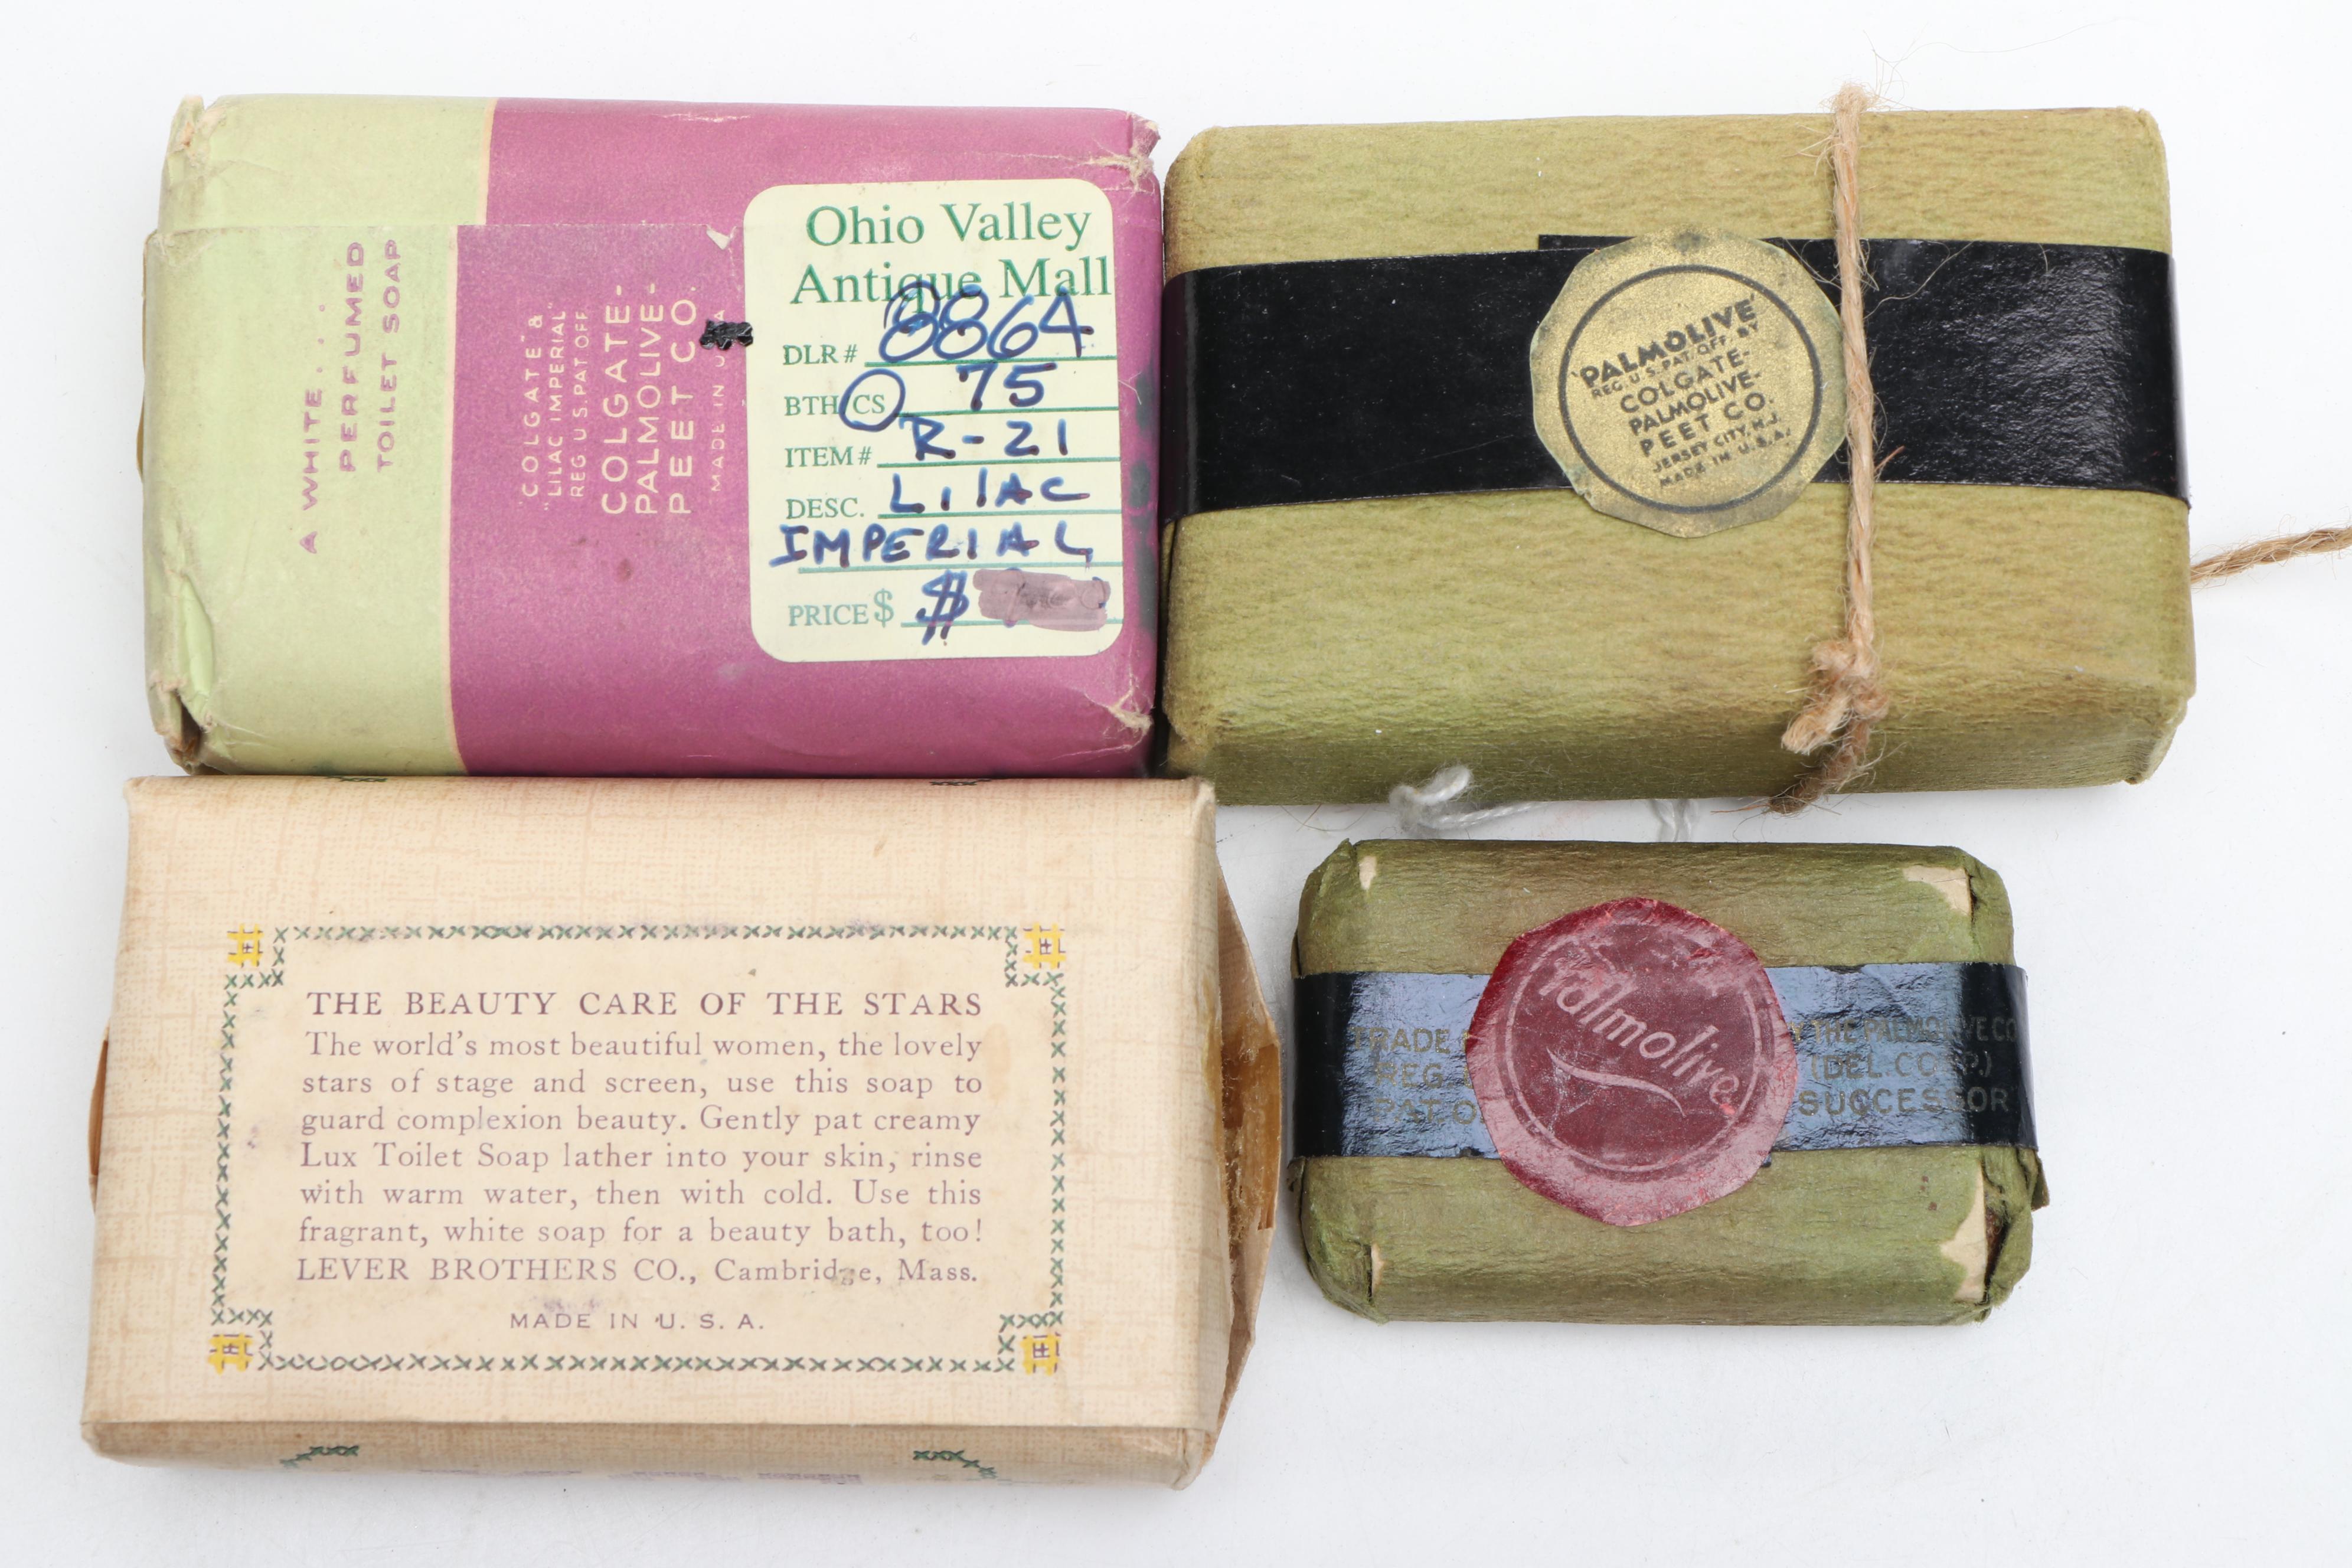 A WHITE . . .
PERFUMED
TOILET SOAP
"COLGATE" &
"LILAC IMPERIAL"
REG U.S. PAT OFF.
COLGATE-
PALMOLIVE-
PEET CO.
MADE IN
Ohio Valley
Antique Mall
DLR # 8864
BTH CS 75
ITEM # R-21
DESC. LILAC
IMPERIAL
PRICE $ $
"PALMOLIVE"
REG. U.S. PAT. OFF. BY
COLGATE-
PALMOLIVE-
PEET CO.
JERSEY CITY, N.J.
MADE IN U.S.A.
THE BEAUTY CARE OF THE STARS
The world's most beautiful women, the lovely
stars of stage and screen, use this soap to
guard complexion beauty. Gently pat creamy
Lux Toilet Soap lather into your skin, rinse
with warm water, then with cold. Use this
fragrant, white soap for a beauty bath, too!
LEVER BROTHERS CO., Cambridge, Mass.
MADE IN U. S. A.
TRADE
REG
PAT O
Palmolive
THE PALMOLIVE CO
(DEL CORP.)
SUCCESSOR